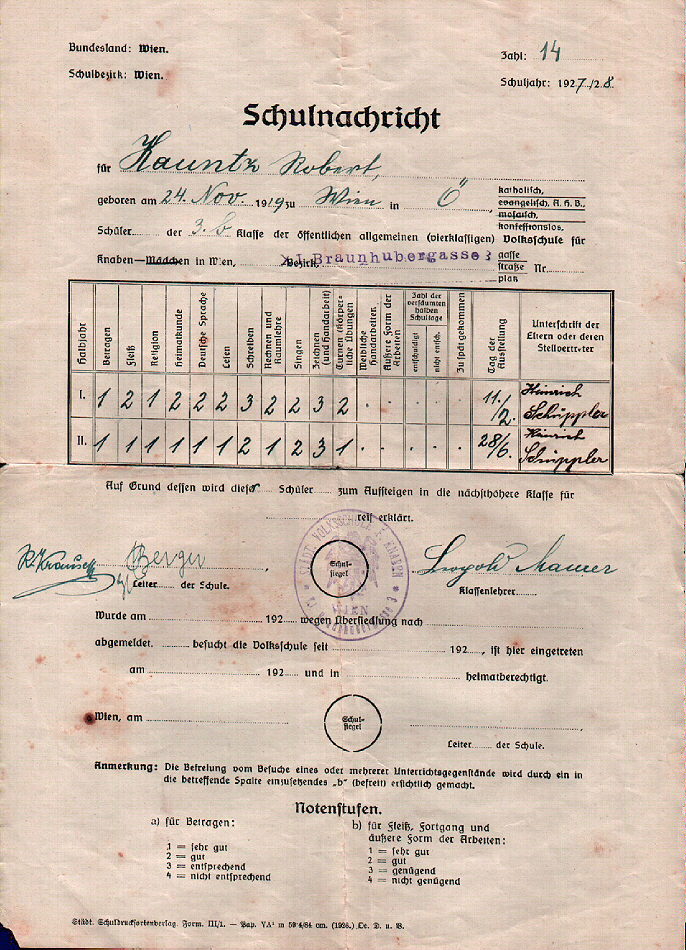 Bundesland: Wien.
Zahl: 14
Schulbezirk: Wien.
Schuljahr: 1927/28.
Schulnachricht
für Kauntz Robert,
geboren am 24. Nov. 1919 zu Wien in Ö
katholisch,
evangelisch, A. H. B.,
mosaisch,
konfessionslos.
Schüler der 3. b Klasse der öffentlichen allgemeinen (vierklassigen) Volksschule für
Knaben—Mädchen in Wien, XI. Bezirk, Braunhubergasse 3
gasse
straße Nr.
platz
Halbjahr
Betragen
Fleiß
Religion
Heimatkunde
Deutsche Sprache
Lesen
Schreiben
Rechnen und Raumlehre
Singen
Zeichnen (und Handarbeit)
Turnen (körperliche Übungen)
Weibliche Handarbeiten
Äußere Form der Arbeiten
Zahl der versäumten halben Schultage
entschuldigt
nicht entsch.
Zu spät gekommen
Tag der Ausstellung
Unterschrift der Eltern oder deren Stellvertreter
I. 1 2 1 2 2 2 3 2 2 3 2 . . . . . 11./2. Heinrich Schüppler
II. 1 1 1 1 1 1 2 1 2 3 1 . . . . . 28/6. Heinrich Schüppler
Auf Grund dessen wird dieser Schüler zum Aufsteigen in die nächsthöhere Klasse für
reif erklärt.
Berger
Leopold Maurer
Leiter der Schule.
Schulsiegel
WIEN
Klassenlehrer
Wurde am 192 wegen Übersiedlung nach
abgemeldet. besucht die Volksschule seit 192 , ist hier eingetreten
am 192 und in heimatberechtigt.
Wien, am
Schulsiegel
Leiter der Schule.
Anmerkung: Die Befreiung vom Besuche eines oder mehrerer Unterrichtsgegenstände wird durch ein in
die betreffende Spalte einzusetzendes „b“ (befreit) ersichtlich gemacht.
Notenstufen.
a) für Betragen:
1 = sehr gut
2 = gut
3 = entsprechend
4 = nicht entsprechend
b) für Fleiß, Fortgang und
äußere Form der Arbeiten:
1 = sehr gut
2 = gut
3 = genügend
4 = nicht genügend
Städt. Schuldrucksortenverlag. Form. III/1. — Pap. VA¹ m 59 4/84 cm. (1926.) Oe. D. u. B.